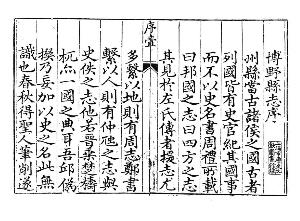 博野縣志序
州縣當古諸侯之國古者
列國皆有史官紀其國事
而不以史名書周禮所載
曰邦國之志曰四方之志
其見於左氏傳者援志尤
序壹
多繫以地則有周志鄭書
繫以人則有仲虺之志與
史佚之志他若晉乘楚檮
杌亦一國之典耳吾邱偽
撰乃妄加以史之名此無
識也春秋得聖人筆削遂